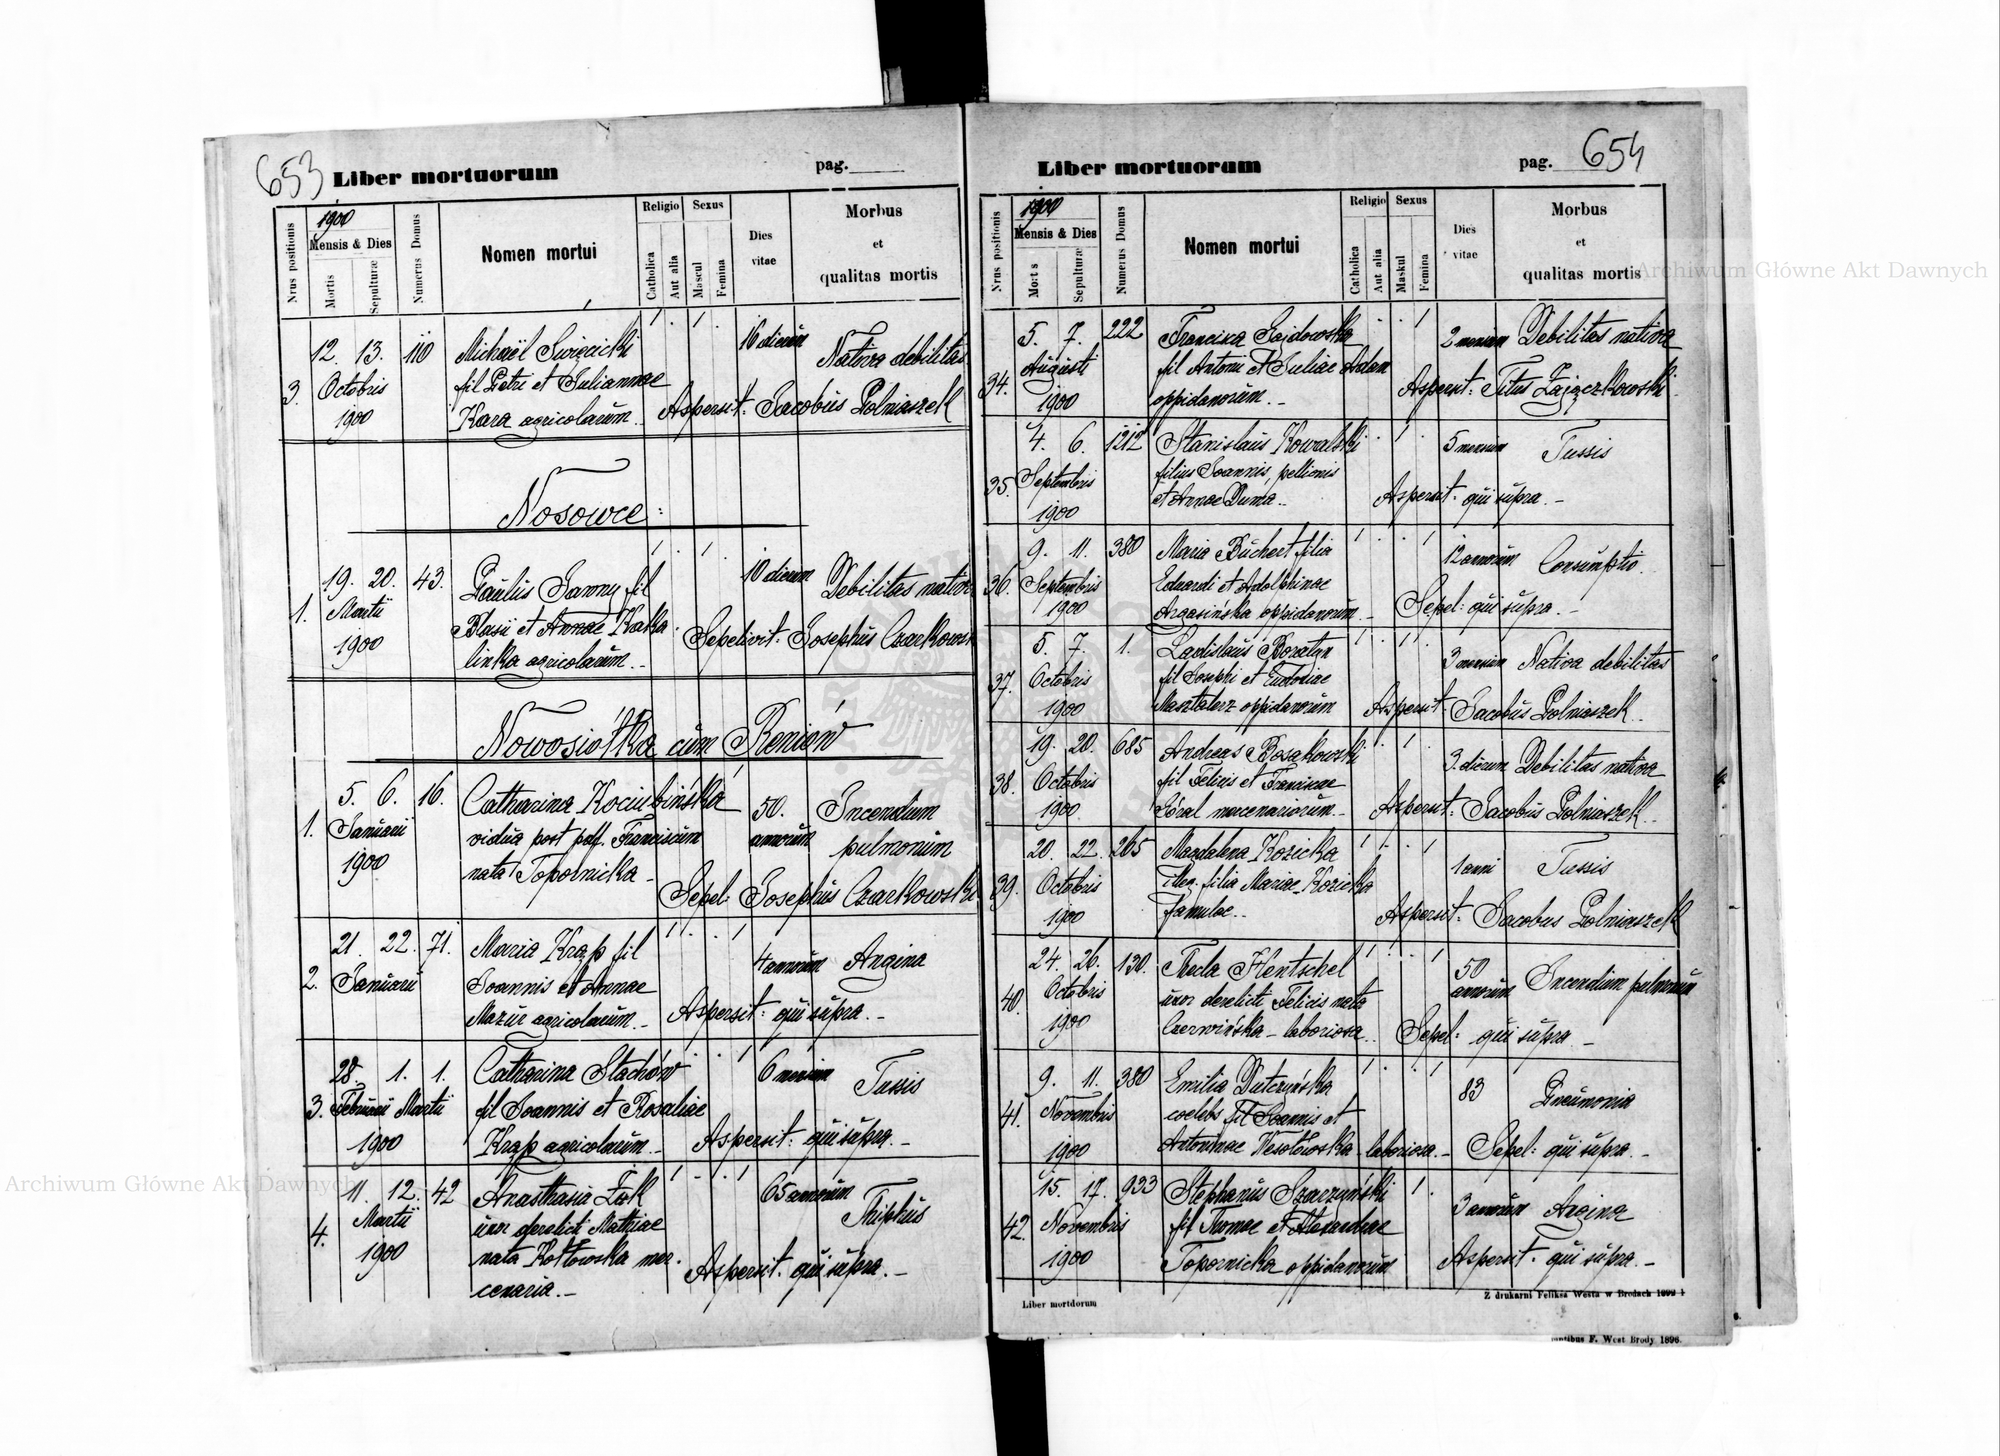 653
Liber mortuorum
pag.
1900
Nrus positionis
Mensis & Dies
Mortis
Sepulturæ
Numerus Domus
Nomen mortui
Religio
Catholica
Aut alia
Sexus
Mascul
Femina
Dies
vitae
Morbus
et
qualitas mortis
3.
12. 13.
Octobris
1900
110
Michaël Święcicki
fil Petri et Juliannae
Kara agricolarum.
16 dierum
Nativa debilitas
Aspersit: Jacobus Polniaszek
Nosowce:
1.
19. 20.
Martii
1900
43.
Paulus Jawny fil
Blasii et Annae Kaka
linka agricolarum.
10 dierum
Debilitas nativa
Sepelivit: Josephus Czarkowski
Nowosiółka cum Reniów
1.
5. 6.
Januarii
1900
16.
Catharina Kociubińska
vidua post pdf. Franciscum
nata Topornicka
50.
annorum
Incendium
pulmonum
Sepel: Josephus Czarkowski
2.
21. 22.
Januarii
71.
Maria Krąp fil
Joannis et Annae
Mazur agricolarum.
4 annorum
Angina
Aspersit: qui supra. –
3.
28. 1.
Februarii Martii
1900
1.
Catharina Stachów
fil Joannis et Rosaliae
Krąp agricolarum. –
6 mensium
Tussis
Aspersit: qui supra. –
4.
11. 12.
Martii
1900
42
Anasthasia Żak
uxor derelicti Mathiae
nata Kotłowska mer-
cenaria. –
65 annorum
Thiphus
Aspersit: qui supra. –
654
Liber mortuorum
pag.
1900
Nrus positionis
Mensis & Dies
Mort s
Sepulturæ
Numerus Domus
Nomen mortui
Religio
Catholica
Aut alia
Sexus
Maskul
Femina
Dies
vitae
Morbus
et
qualitas mortis
34.
5. 7.
Augusti
1900
222
Francisca Gajdowska
fil Antoni et Juliae Adam
oppidanorum. –
2 mensium
Debilitas nativa
Aspersit: Titus Zajączkowski
35.
4. 6.
Septembris
1900
1212
Stanislaus Kowalski
filius Joannis, pellionis
et Annae Duma..
5 mensium
Tussis
Aspersit: qui supra. –
36.
9. 11.
Septembris
1900
380
Maria Buchert filia
Eduardi et Adolphinae
Argasińska oppidanorum. –
12 annorum
Consumptio
Sepel: qui supra. –
37.
5. 7.
Octobris
1900
1.
Ladislaus Boratyn
fil Josephi et Eudoxiae
Masztalerz oppidanorum
3 mensium
Nativa debilitas
Aspersit: Jacobus Polniaszek.
38.
19. 20.
Octobris
1900
685
Andreas Bosakowski
fil Felicis et Franciscae
Góral mercenariorum. –
3. dierum
Debilitas nativa
Aspersit: Jacobus Polniaszek.
39.
20. 22.
Octobris
1900
265
Magdalena Kozicka
illeg. filia Mariae Kozicka
famulae..
1 anni
Tussis
Aspersit: Jacobus Polniaszek
40.
24. 26.
Octobris
1900
130.
Thecla Hentschel
uxor derelicti Felicis nata
Czerwińska – laboriosa..
50
annorum
Incendium pulmonum
Sepel: qui supra –
41.
9. 11.
Novembris
1900
380
Emilia Dutczyńska
coelebs fil Joannis et
Antoninae Wesołowska – laboriosa. –
83
Pneumonia
Sepel: qui supra. –
42.
15. 17.
Novembris
1900
933
Stephanus Szarzyński
fil Thomae et Alexandrae
Topornicka oppidanorum
3 annorum
Angina
Aspersit: qui supra. –
Liber mortdorum
Z drukarni Feliksa Westa w Brodach
F. West Brody 1896.
Archiwum Główne Akt Dawnych
Archiwum Główne Akt Dawnych